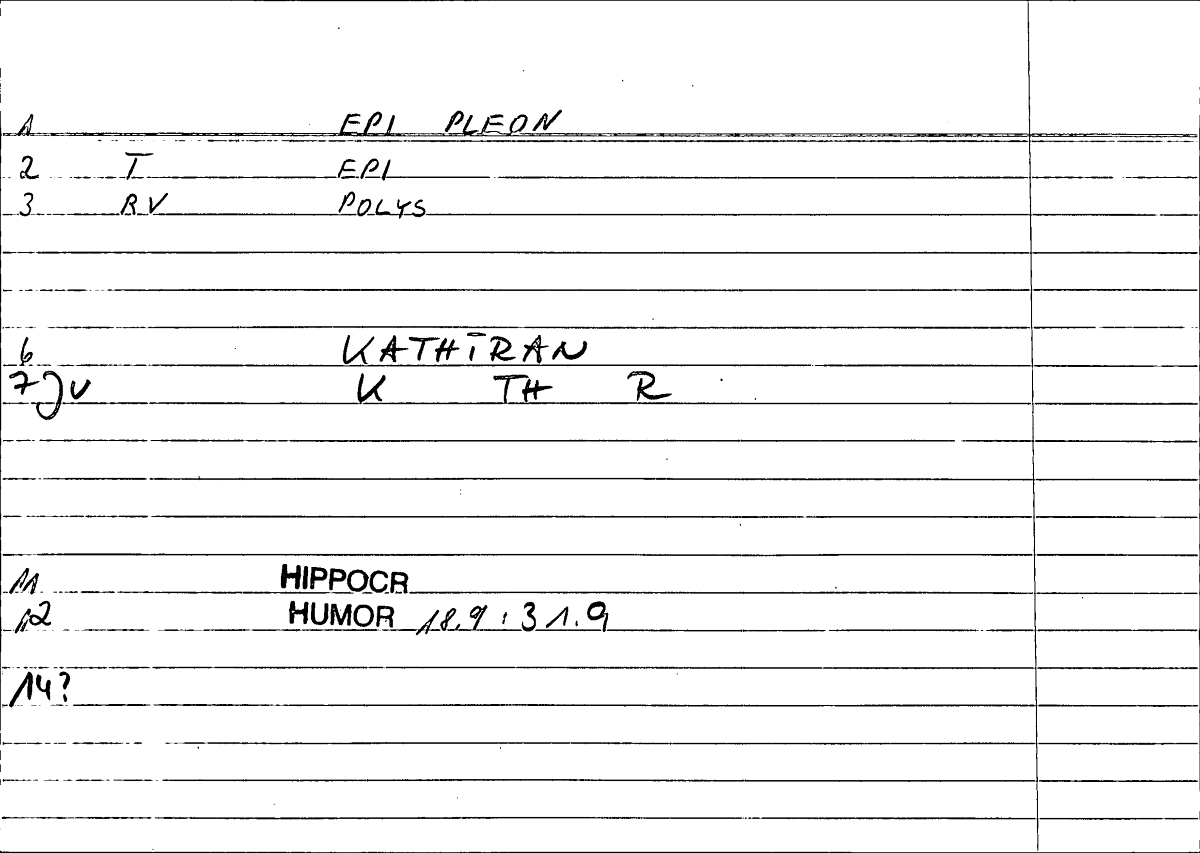 1 EPI PLEON
2 T EPI
3 RV POLYS
6 KATHIRAN
7 JV K TH R
11 HIPPOCR
12 HUMOR 18.9 : 31.9
14?